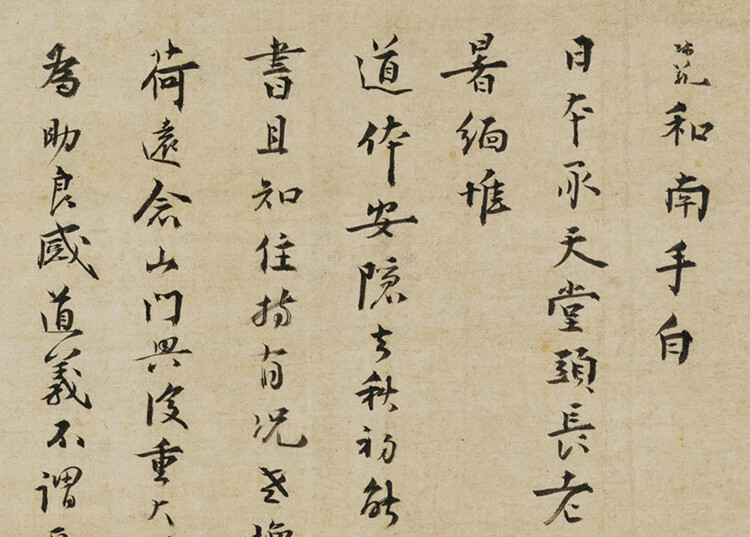 師範和南手白
日本承天堂頭長老
暑緬惟
道体安隱去秋初能
書且知住持有况老
荷遠念山門興復重大
為助良感道義不謂